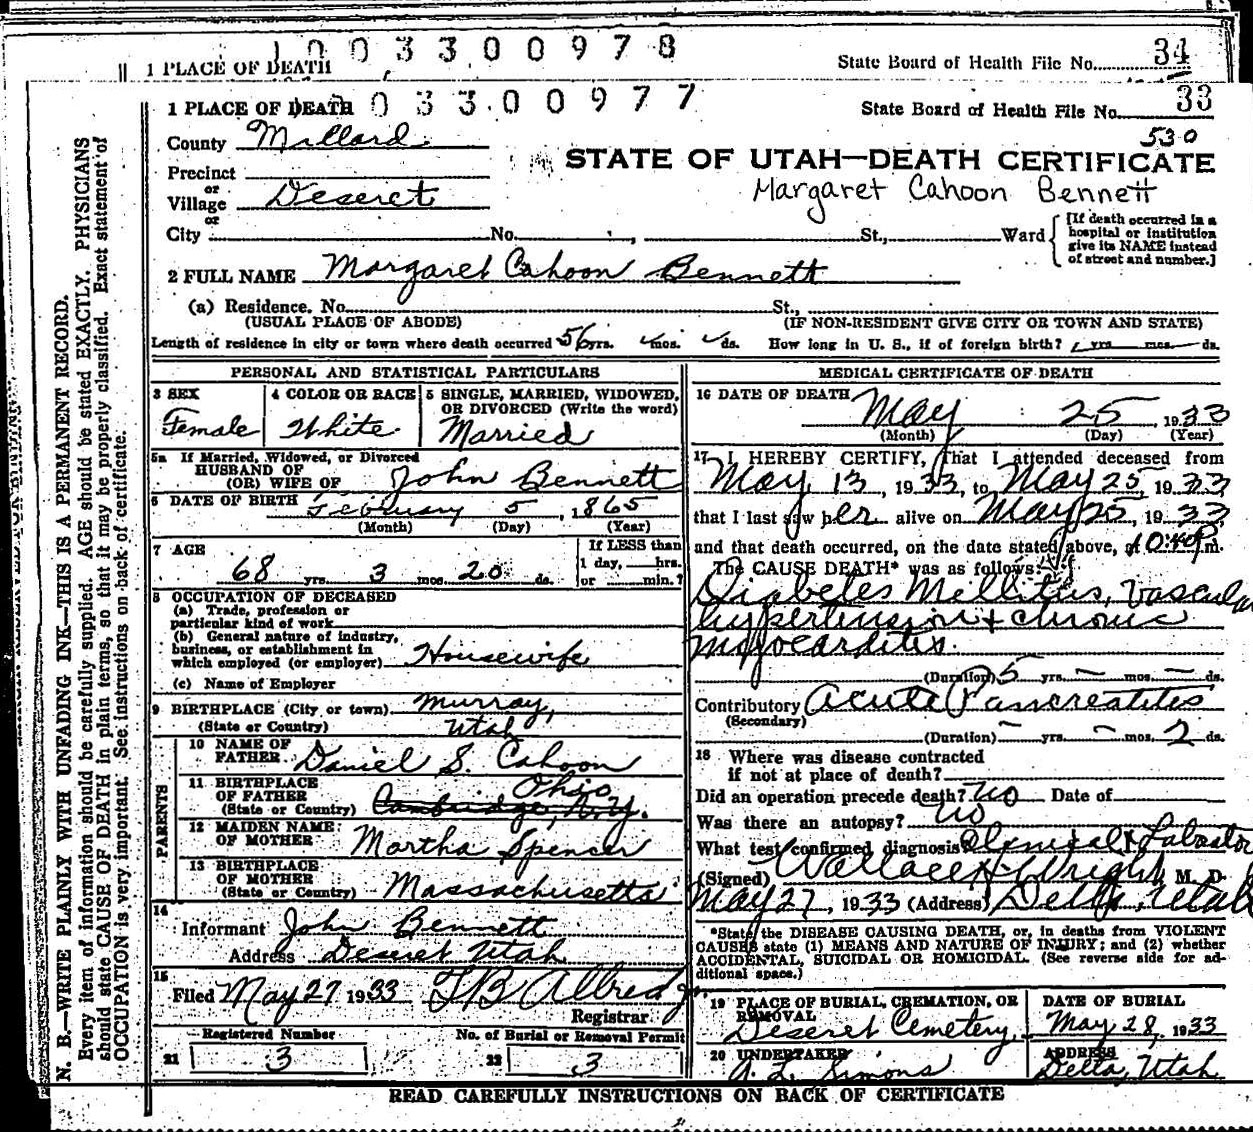 1003300978
1 PLACE OF DEATH
State Board of Health File No. 34
1 PLACE OF DEATH
1003300977
State Board of Health File No. 33
County Millard
530
STATE OF UTAH—DEATH CERTIFICATE
Precinct
or
Village Deseret
Margaret Cahoon Bennett
or
City No. , St., Ward
[If death occurred in a
hospital or institution
give its NAME instead
of street and number.]
2 FULL NAME Margaret Cahoon Bennett
(a) Residence. No. St.,
(USUAL PLACE OF ABODE) (IF NON-RESIDENT GIVE CITY OR TOWN AND STATE)
Length of residence in city or town where death occurred 56 yrs. mos. ds. How long in U. S., if of foreign birth? yrs. mos. ds.
PERSONAL AND STATISTICAL PARTICULARS
3 SEX
Female
4 COLOR OR RACE
White
5 SINGLE, MARRIED, WIDOWED,
OR DIVORCED (Write the word)
Married
5a If Married, Widowed, or Divorced
HUSBAND OF
(OR) WIFE OF John Bennett
6 DATE OF BIRTH February 5, 1865
(Month) (Day) (Year)
7 AGE
68 yrs. 3 mos. 20 ds.
If LESS than
1 day, hrs.
or min.?
8 OCCUPATION OF DECEASED
(a) Trade, profession or
particular kind of work
(b) General nature of industry,
business, or establishment in
which employed (or employer) Housewife
(c) Name of Employer
9 BIRTHPLACE (City or town) Murray,
(State or Country) Utah
PARENTS
10 NAME OF
FATHER Daniel S. Cahoon
11 BIRTHPLACE
OF FATHER Ohio
(State or Country) Cambridge, N.Y.
12 MAIDEN NAME
OF MOTHER Martha Spencer
13 BIRTHPLACE
OF MOTHER
(State or Country) Massachusetts
14
Informant John Bennett
Address Deseret Utah
15
Filed May 27 1933 Allred
Registrar
Registered Number
21 3
No. of Burial or Removal Permit
22 3
MEDICAL CERTIFICATE OF DEATH
16 DATE OF DEATH
May 25, 1933
(Month) (Day) (Year)
17 I HEREBY CERTIFY, That I attended deceased from
May 13, 1933, to May 25, 1933
that I last saw her alive on May 25, 1933
and that death occurred, on the date stated above, at 10:40 P.m.
The CAUSE DEATH* was as follows:
Diabetes Mellitus, Vascular
hypertension + chronic
myocarditis.
(Duration) 5 yrs. – mos. – ds.
Contributory Acute Pancreatitis
(Secondary)
(Duration) – yrs. – mos. 2 ds.
18 Where was disease contracted
if not at place of death?
Did an operation precede death? No Date of
Was there an autopsy? No
What test confirmed diagnosis
(Signed) Wallace H Wright, M. D.
May 27, 1933 (Address) Delta, Utah
*State the DISEASE CAUSING DEATH, or, in deaths from VIOLENT
CAUSES state (1) MEANS AND NATURE OF INJURY; and (2) whether
ACCIDENTAL, SUICIDAL OR HOMICIDAL. (See reverse side for ad-
ditional space.)
19 PLACE OF BURIAL, CREMATION, OR
REMOVAL
Deseret Cemetery
DATE OF BURIAL
May 28, 1933
20 UNDERTAKER
A. L. Simons
ADDRESS
Delta, Utah
READ CAREFULLY INSTRUCTIONS ON BACK OF CERTIFICATE
N. B.—WRITE PLAINLY WITH UNFADING INK—THIS IS A PERMANENT RECORD.
Every item of information should be carefully supplied. AGE should be stated EXACTLY. PHYSICIANS
should state CAUSE OF DEATH in plain terms, so that it may be properly classified. Exact statement of
OCCUPATION is very important. See instructions on back of certificate.